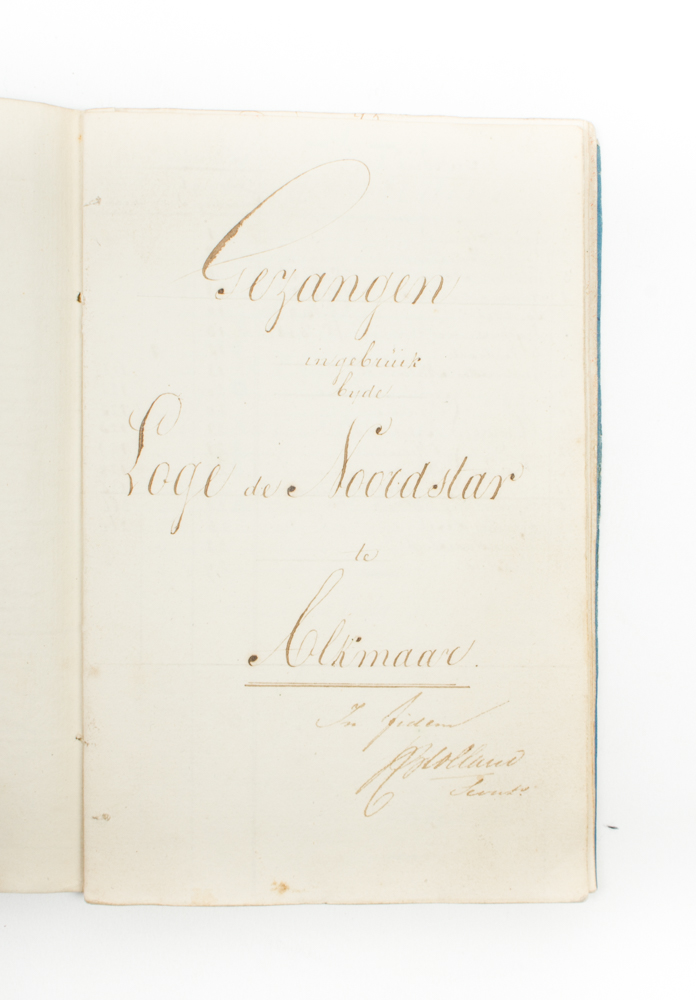 Gezangen
in gebruik
by de
Loge de Noordstar
te
Alkmaar.
In fidem
Holland